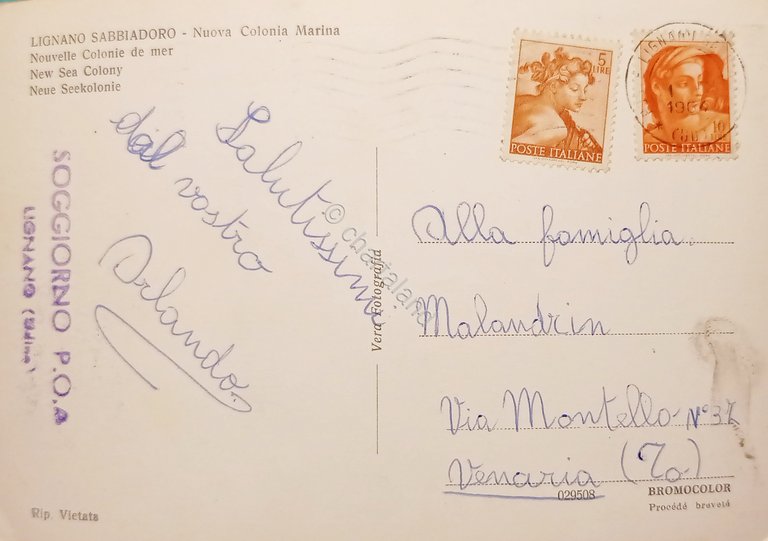 LIGNANO SABBIADORO - Nuova Colonia Marina
Nouvelle Colonie de mer
New Sea Colony
Neue Seekolonie
Salutissimi
dal vostro
Orlando
SOGGIORNO P.O.A
LIGNANO (Udine)
Rip. Vietata
Vera Fotografia
© chatalana
5
LIRE
POSTE ITALIANE
LIGNANO
10
POSTE ITALIANE
Alla famiglia
Malandrin
Via Montello N° 37
Venaria (To)
029508
BROMOCOLOR
Procédé breveté